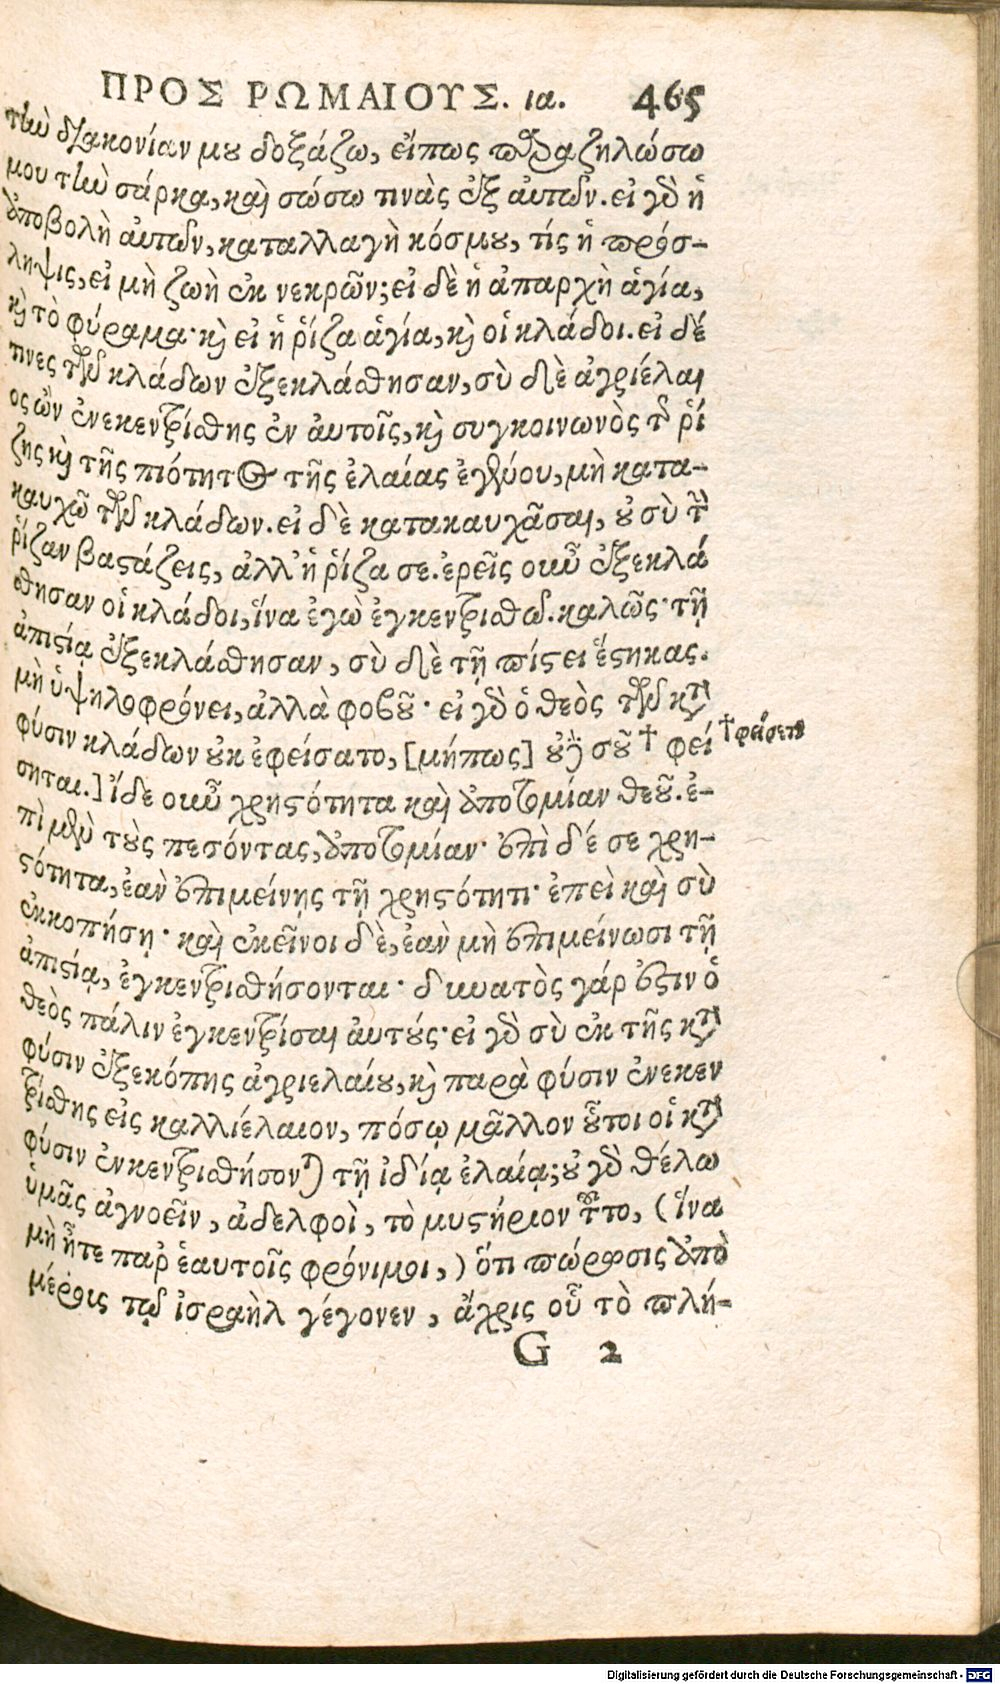 ΠΡΟΣ ΡΩΜΑΙΟΥΣ. ια. 465
τὴν διακονίαν μου δοξάζω, εἴπως παραζηλώσω
μου τὴν σάρκα, καὶ σώσω τινὰς ἐξ αὐτῶν. εἰ γὸ ἡ
ἀποβολὴ αὐτῶν, καταλλαγὴ κόσμου, τίς ἡ πρόσ-
ληψις, εἰ μὴ ζωὴ ἐκ νεκρῶν; εἰ δὲ ἡ ἀπαρχὴ ἁγία,
κὶ τὸ φύραμα· κὶ εἰ ἡ ῥίζα ἁγία, κὶ οἱ κλάδοι. εἰ δέ
τινες τῶν κλάδων ἐξεκλάσθησαν, σὺ δὲ ἀγριέλαι
ος ὢν ἐνεκεντρίσθης ἐν αὐτοῖς, κὶ συγκοινωνὸς τῆς ῥί
ζης κὶ τῆς πιότητος τῆς ἐλαίας ἐγένου, μὴ κατα-
καυχῶ τῶν κλάδων. εἰ δὲ κατακαυχᾶσαι, οὐ σὺ τὴν
ῥίζαν βαστάζεις, ἀλλ' ἡ ῥίζα σε. ἐρεῖς οὖν ἐξεκλά
σθησαν οἱ κλάδοι, ἵνα ἐγὼ ἐγκεντρισθῶ. καλῶς· τῇ
ἀπιστίᾳ ἐξεκλάσθησαν, σὺ δὲ τῇ πίστει ἕστηκας.
μὴ ὑψηλοφρόνει, ἀλλὰ φοβοῦ· εἰ γὸ ὁ θεὸς τῶν κτ
φύσιν κλάδων οὐκ ἐφείσατο, [μήπως] οὐδὲ σοῦ † φεί
† φείσεται
σηται.] ἴδε οὖν χρηστότητα καὶ ἀποτομίαν θεοῦ. ἐ-
πὶ μὲν τοὺς πεσόντας, ἀποτομίαν· ἐπὶ δέ σε χρη-
στότητα, ἐὰν ἐπιμείνῃς τῇ χρηστότητι· ἐπεὶ καὶ σὺ
ἐκκοπήσῃ· καὶ ἐκεῖνοι δὲ, ἐὰν μὴ ἐπιμείνωσι τῇ
ἀπιστίᾳ, ἐγκεντρισθήσονται· δυνατὸς γάρ ἐστιν ὁ
θεὸς πάλιν ἐγκεντρίσαι αὐτούς· εἰ γὸ σὺ ἐκ τῆς κτ
φύσιν ἐξεκόπης ἀγριελαίου, κὶ παρὰ φύσιν ἐνεκεν
τρίσθης εἰς καλλιέλαιον, πόσῳ μᾶλλον οὗτοι οἱ κτ
φύσιν ἐνκεντρισθήσονται τῇ ἰδίᾳ ἐλαίᾳ; οὐ γὸ θέλω
ὑμᾶς ἀγνοεῖν, ἀδελφοὶ, τὸ μυστήριον τοῦτο, (ἵνα
μὴ ἦτε παρ' ἑαυτοῖς φρόνιμοι,) ὅτι πώρωσις ἀπὸ
μέρους τῷ ἰσραὴλ γέγονεν, ἄχρις οὗ τὸ πλή-
G 2
Digitalisierung gefördert durch die Deutsche Forschungsgemeinschaft - DFG